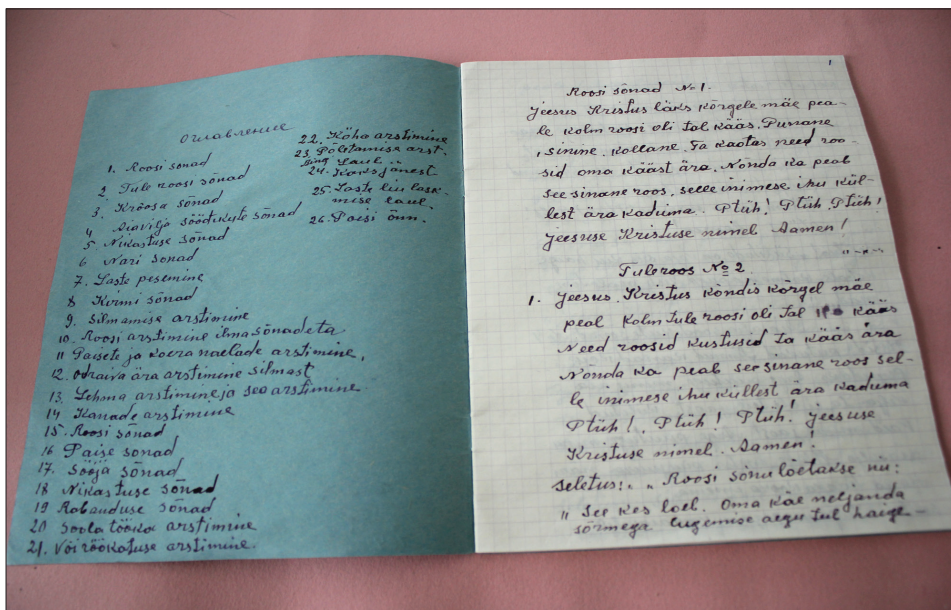 Оглавление
1. Roosi sonad
2 Tule roosi sõnad
3. Kröösa sõnad
4 Aiavilja söödikute sõnad
5. Nikastuse sõnad
6 Nari sonad
7. Laste pesemine
8 Kirmi sõnad
9. Silmamise arstimine
10. Roosi arstimine ilma sõnadeta
11 Paisete ja koera naelade arstimine,
12. odraiva ära arstimine silmast
13. Lehma arstimine ja sea arstimine.
14. Kanade arstimine
15. Roosi sõnad
16 Paise sonad
17. Sööja sõnad
18 Nikastuse sõnad
19 Rabanduse sõnad
20 Soola tööka arstimine
21. Või röökatuse arstimine.
22. Köha arstimine
23. Põletamise arst.
Laul
24. Karsjanest
25. Laste liu lask-
mise laul.
26. Poisi õnn.
1
Roosi sõnad № 1.
Jeesus Kristus läks kõrgele mäe pea-
le Kolm roosi oli tal kääs. Punane
, sinine, kollane. Ta kaotas need roo-
sid oma kääst ära. Nõnda ka peab
see sinane roos, selle inimese ihu kül-
lest ära kaduma. Ptüh! Ptüh. Ptüh!
Jeesuse Kristuse nimel Aamen!
Tuleroos № 2
1. Jeesus Kristus kõndis kõrgel mäe
peal Kolm tule roosi oli tal kääs
Need roosid kustusid ta kääs ära
Nõnda ka peab see sinane roos sel-
le inimese ihu küllest ära kaduma
Ptüh!. Ptüh! Ptüh! Jeesuse
Kristuse nimel. Aamen!
Seletus: „ Roosi sõnu lõetakse nii:
" See kes loeb. Oma käe neljanda
sõrmega lugemise aegu teeb haige-